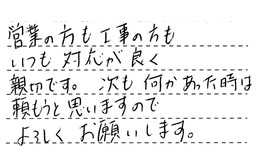 営業の方も工事の方も
いつも対応が良く
親切です。次も何かあった時は
頼もうと思いますので
よろしくお願いします。